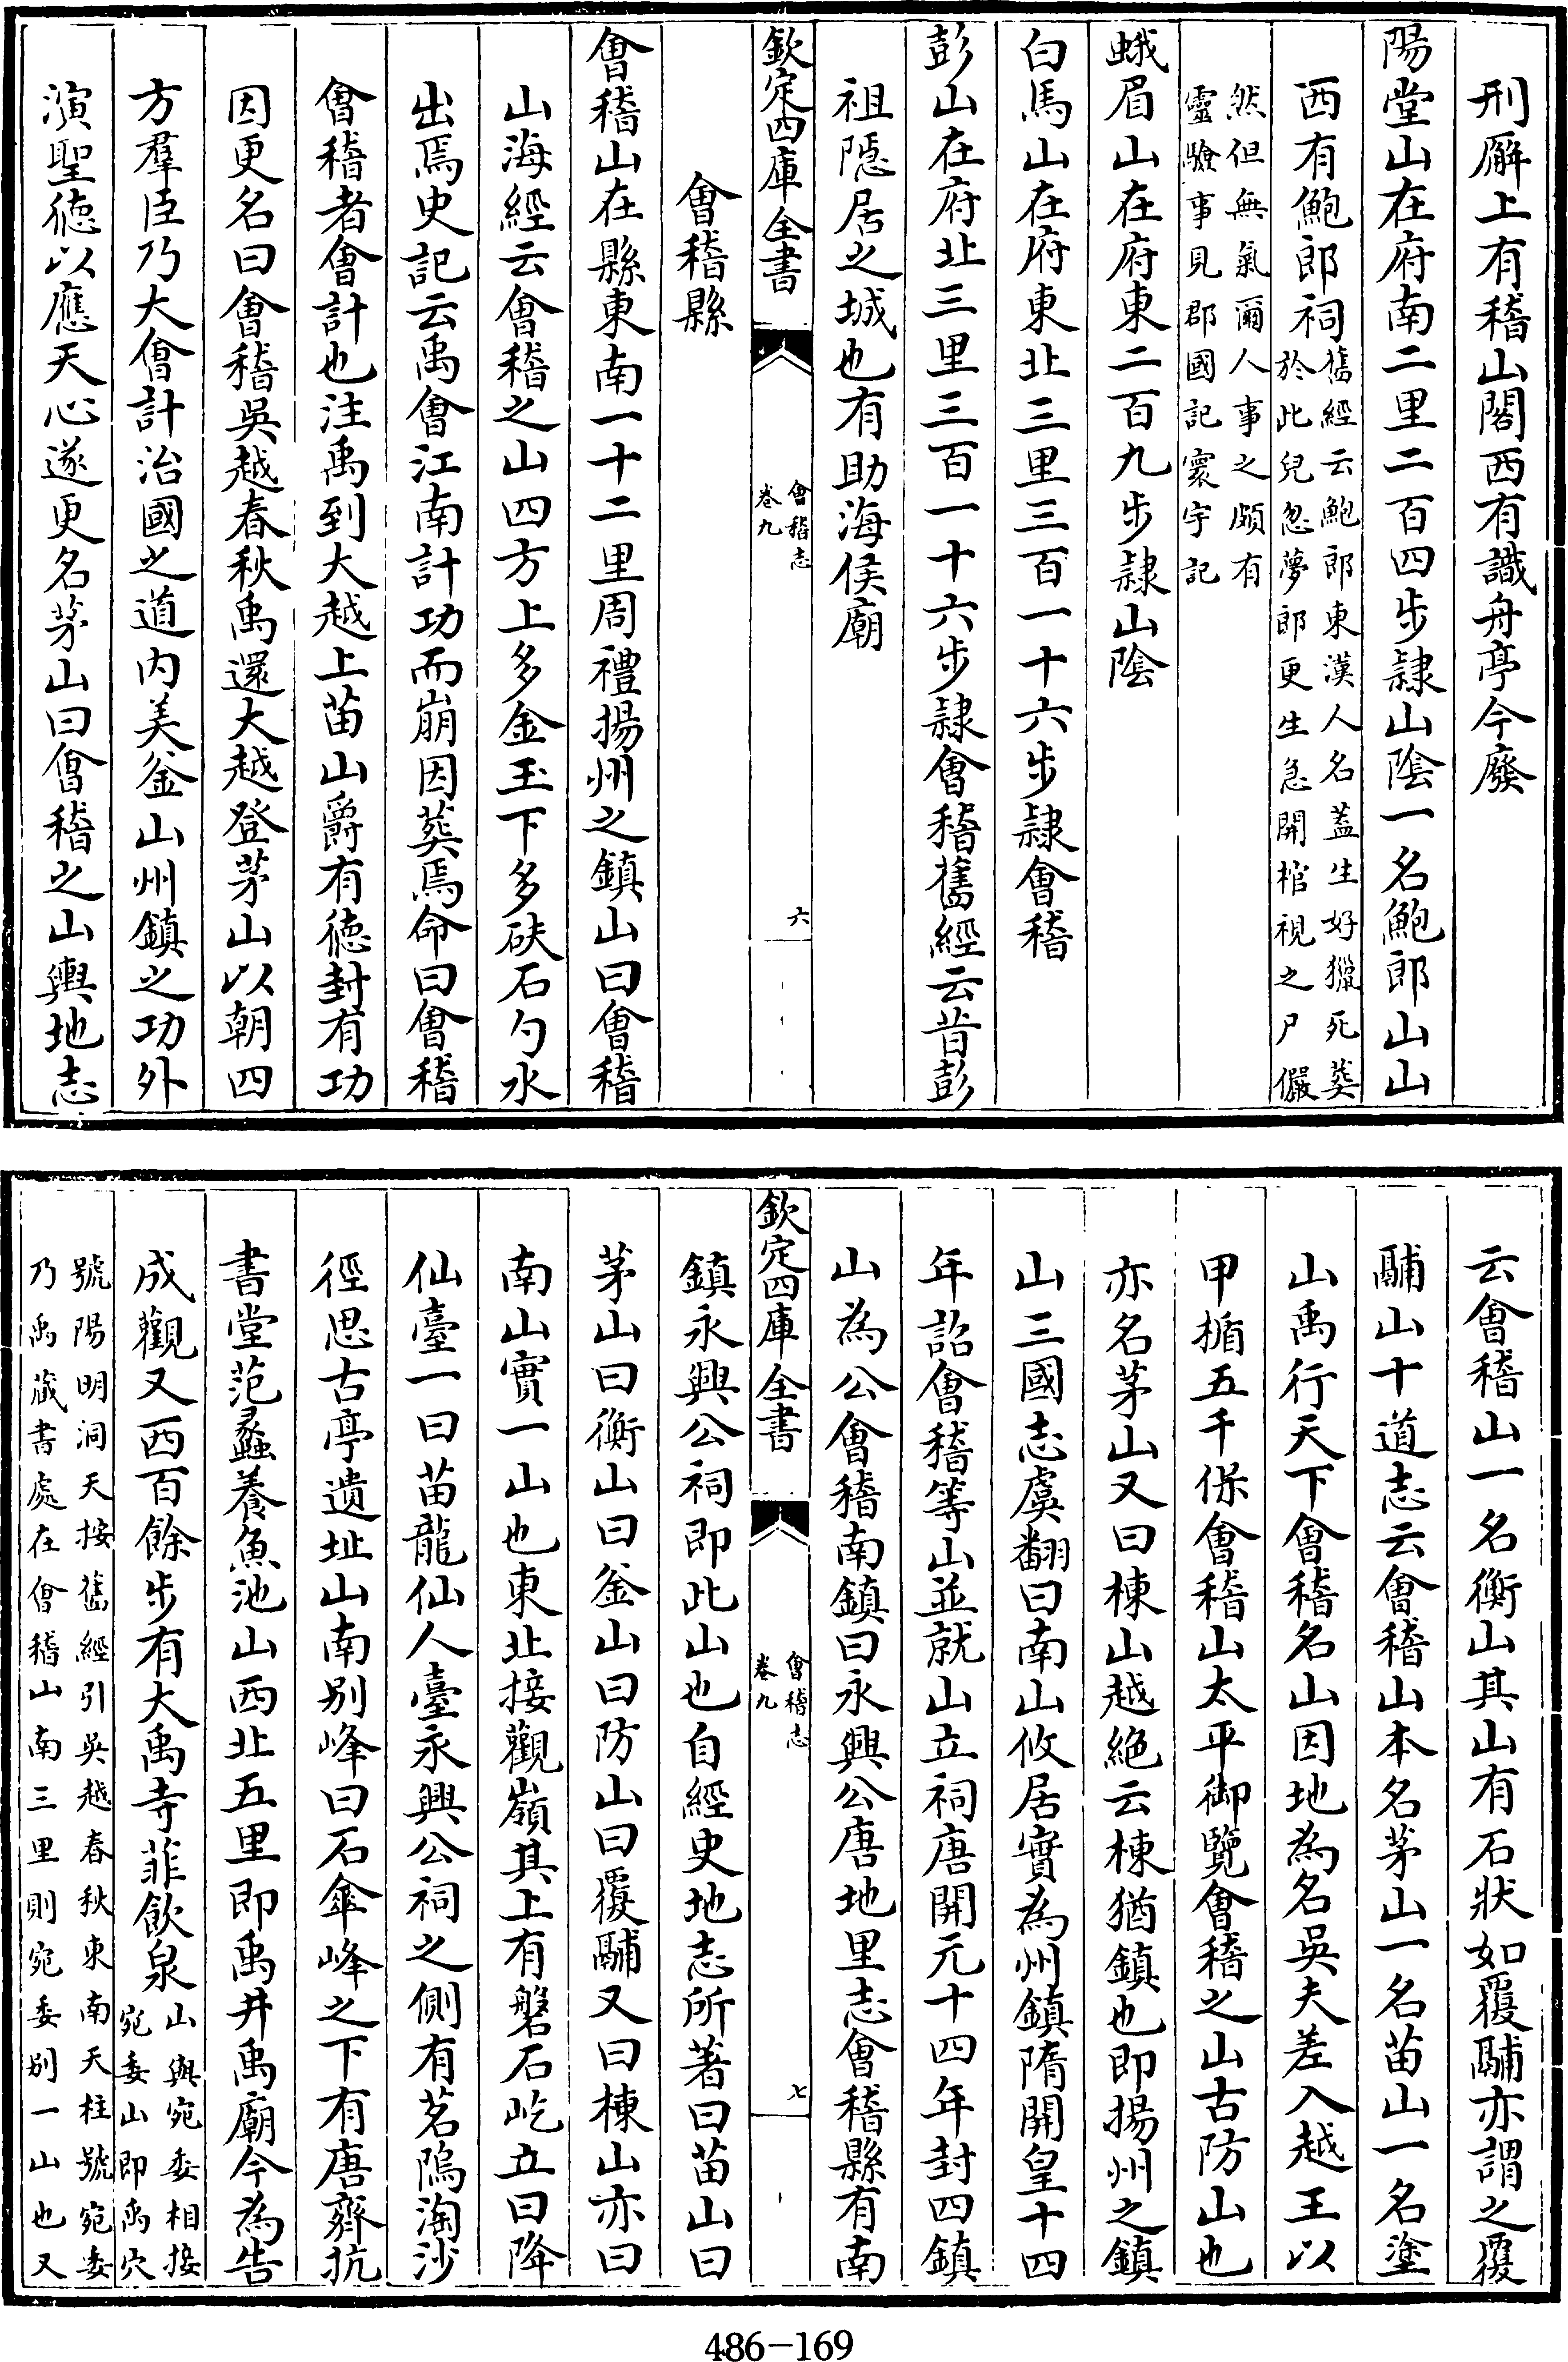 刑廨上有稽山閣西有識舟亭今廢
陽堂山在府南二里二百四步隷山陰一名鮑郎山山
西有鮑郎祠舊經云鮑郎東漢人名蓋生好獵死葬
於此兒忽夢郎更生急開棺視之尸儼
然但無氣爾人事之頗有
靈驗事見郡國記寰宇記
蛾眉山在府東二百九步隷山陰
白馬山在府東北三里三百一十六步隷會稽
彭山在府北三里三百一十六步隷會稽舊經云昔彭
祖隱居之城也有助海侯廟
欽定四庫全書
會稽志
卷九
六
會稽縣
會稽山在縣東南一十二里周禮揚州之鎮山曰會稽
山海經云會稽之山四方上多金玉下多砆石勺水
出焉史記云禹會江南計功而崩因葬焉命曰會稽
會稽者會計也注禹到大越上苗山爵有徳封有功
因更名曰會稽吳越春秋禹還大越登茅山以朝四
方羣臣乃大會計治國之道内美釜山州鎮之功外
演聖徳以應天心遂更名茅山曰會稽之山輿地志
云會稽山一名衡山其山有石狀如覆鬴亦謂之覆
鬴山十道志云會稽山本名茅山一名苗山一名塗
山禹行天下會稽名山因地為名吳夫差入越王以
甲楯五千保會稽山太平御覽會稽之山古防山也
亦名茅山又曰棟山越絶云棟猶鎮也即揚州之鎮
山三國志虞翻曰南山攸居實為州鎮隋開皇十四
年詔會稽等山並就山立祠唐開元十四年封四鎮
山為公會稽南鎮曰永興公唐地里志會稽縣有南
欽定四庫全書
會稽志
卷九
七
鎮永興公祠即此山也自經史地志所著曰苗山曰
茅山曰衡山曰釜山曰防山曰覆鬴又曰棟山亦曰
南山實一山也東北接觀嶺其上有磐石屹立曰降
仙臺一曰苗龍仙人臺永興公祠之側有茗隖淘沙
徑思古亭遺址山南别峰曰石傘峰之下有唐齊抗
書堂范蠡養魚池山西北五里即禹井禹廟今為告
成觀又西百餘步有大禹寺菲飲泉山與宛委相接
宛委山即禹穴
號陽明洞天按舊經引吳越春秋東南天柱號宛委
乃禹藏書處在會稽山南三里則宛委别一山也又
486-169